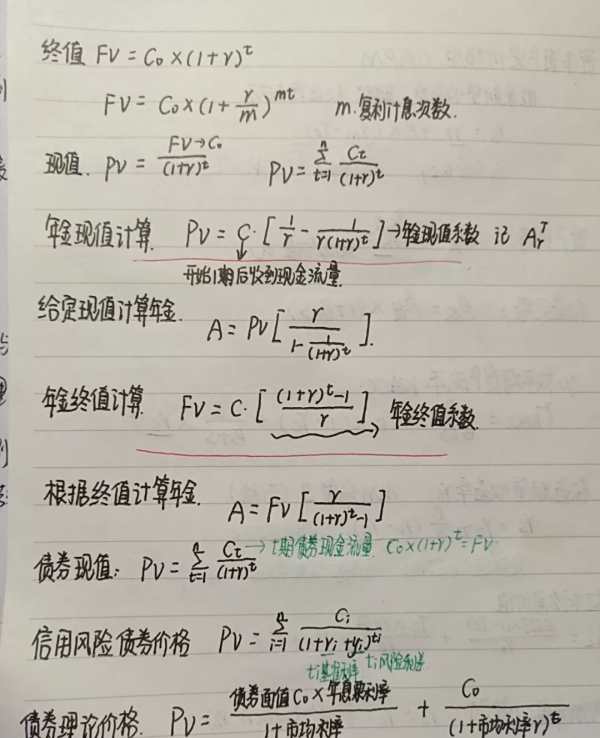 终值 FV = C₀×(1+r)^t
FV = C₀×(1+r/m)^mt m.复利计息次数.
现值. PV = FV→C₀/(1+r)^t PV = ∑_{t=1}^{n} C_t/(1+r)^t
年金现值计算. PV = C·[1/r - 1/r(1+r)^t] →年金现值系数 记 A_r^T
开始1期后收到现金流量.
给定现值计算年金. A = PV[r/(1-1/(1+r)^t)].
年金终值计算. FV = C·[((1+r)^t-1)/r] 年金终值系数.
根据终值计算年金. A = FV[r/((1+r)^t-1)]
债券现值: PV = ∑_{t=1}^{n} C_t/(1+r)^t → t期债券现金流量. C₀×(1+r)^t=FV
信用风险债券价格 PV = ∑_{i=1}^{n} C_i/(1+r_i+y_i)^{t_i}
t_i基准利率 t_i风险利差
债券理论价格. PV = 债券面值C₀×年息票利率/1+市场利率 + C₀/(1+市场利率r)^t